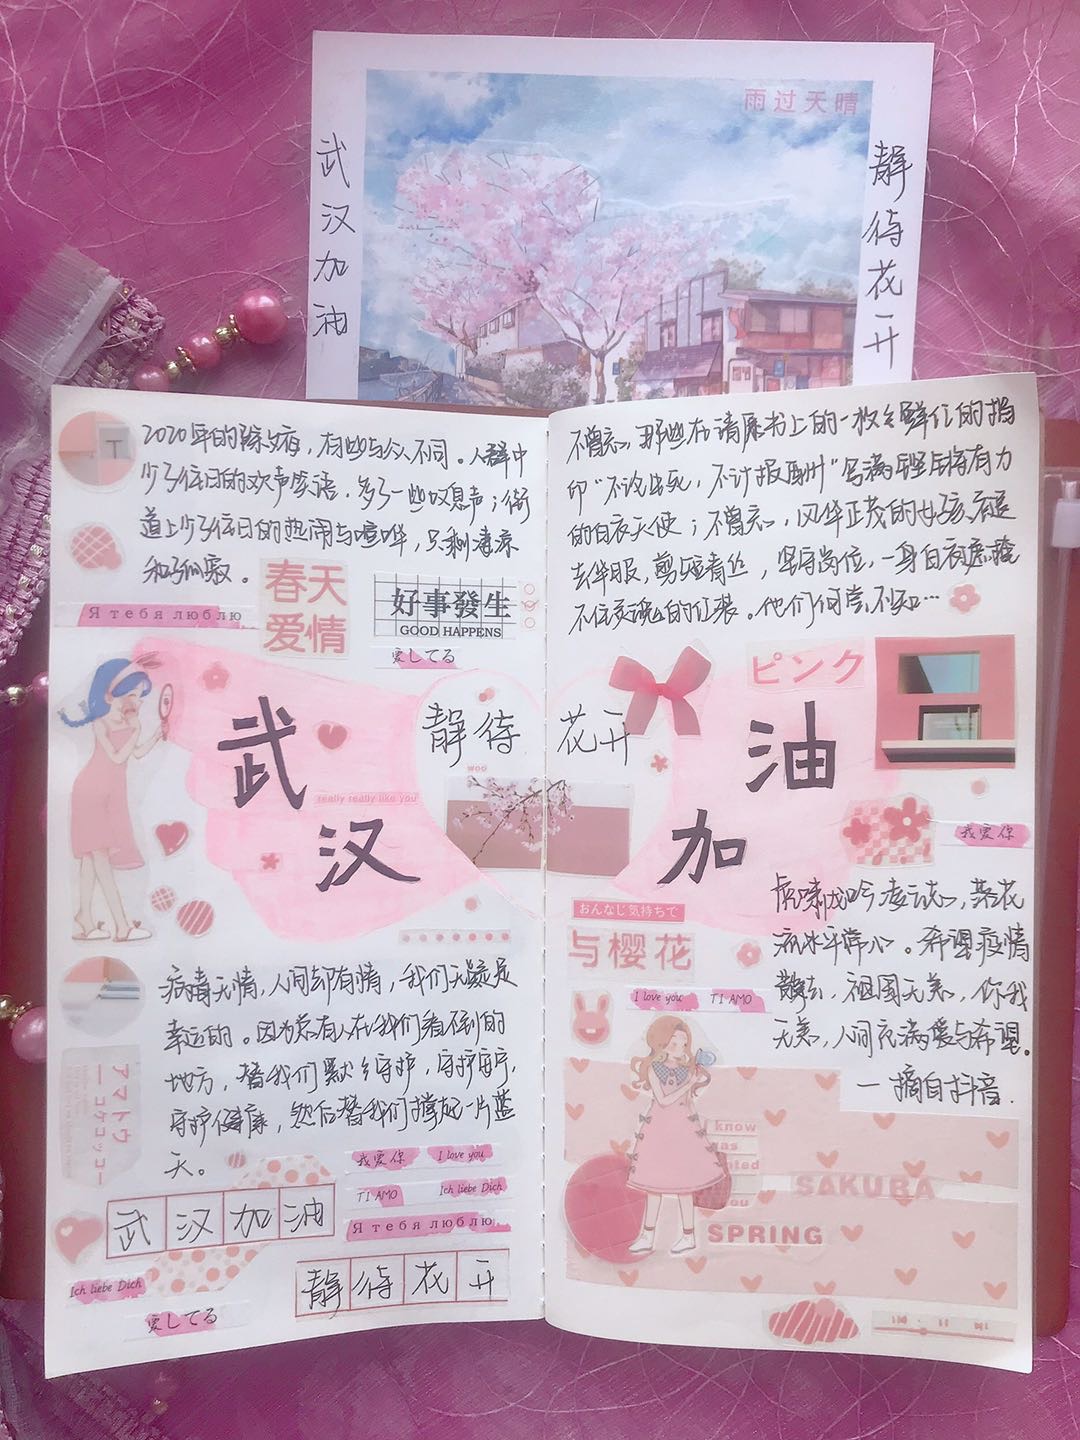 雨过天晴
武汉加油
静待花开
2020年的除夕夜，有些与众不同。人群中
少了往日的欢声笑语，多了一些叹息声；街
道上少了往日的热闹与喧哗，只剩凄凉
和孤寂。
春天
爱情
好事發生
GOOD HAPPENS
Я тебя люблю
愛してる
武汉
静待
woo
really really like you
病毒无情，人间却有情，我们无疑是
幸运的。因为总有人在我们看不到的
地方，替我们默默守护，守护安宁，
守护健康，然后替我们撑起一片蓝
天。
アマトウ
ーコケコッコー
我爱你
I love you
TI AMO
Ich liebe Dich
Я тебя люблю
武汉加油
静待花开
Ich liebe Dich
愛してる
不曾忘，那些在请愿书上的一枚枚鲜红的指
印“不论生死，不计报酬”写满铿锵有力
的白衣天使；不曾忘，风华正茂的女孩，褪
去华服，剪短青丝，坚守岗位，一身白衣遮掩
不住灵魂的红装。他们何尝不知…
ピンク
花开
加油
我爱你
おんなじ気持ちで
与樱花
I love you
TI AMO
虎啸龙吟凌云志，落花
流水平常心。希望疫情
散去，祖国无恙，你我
无恙，人间充满爱与希望。
—摘自抖音.
I know
was
SAKURA
SPRING